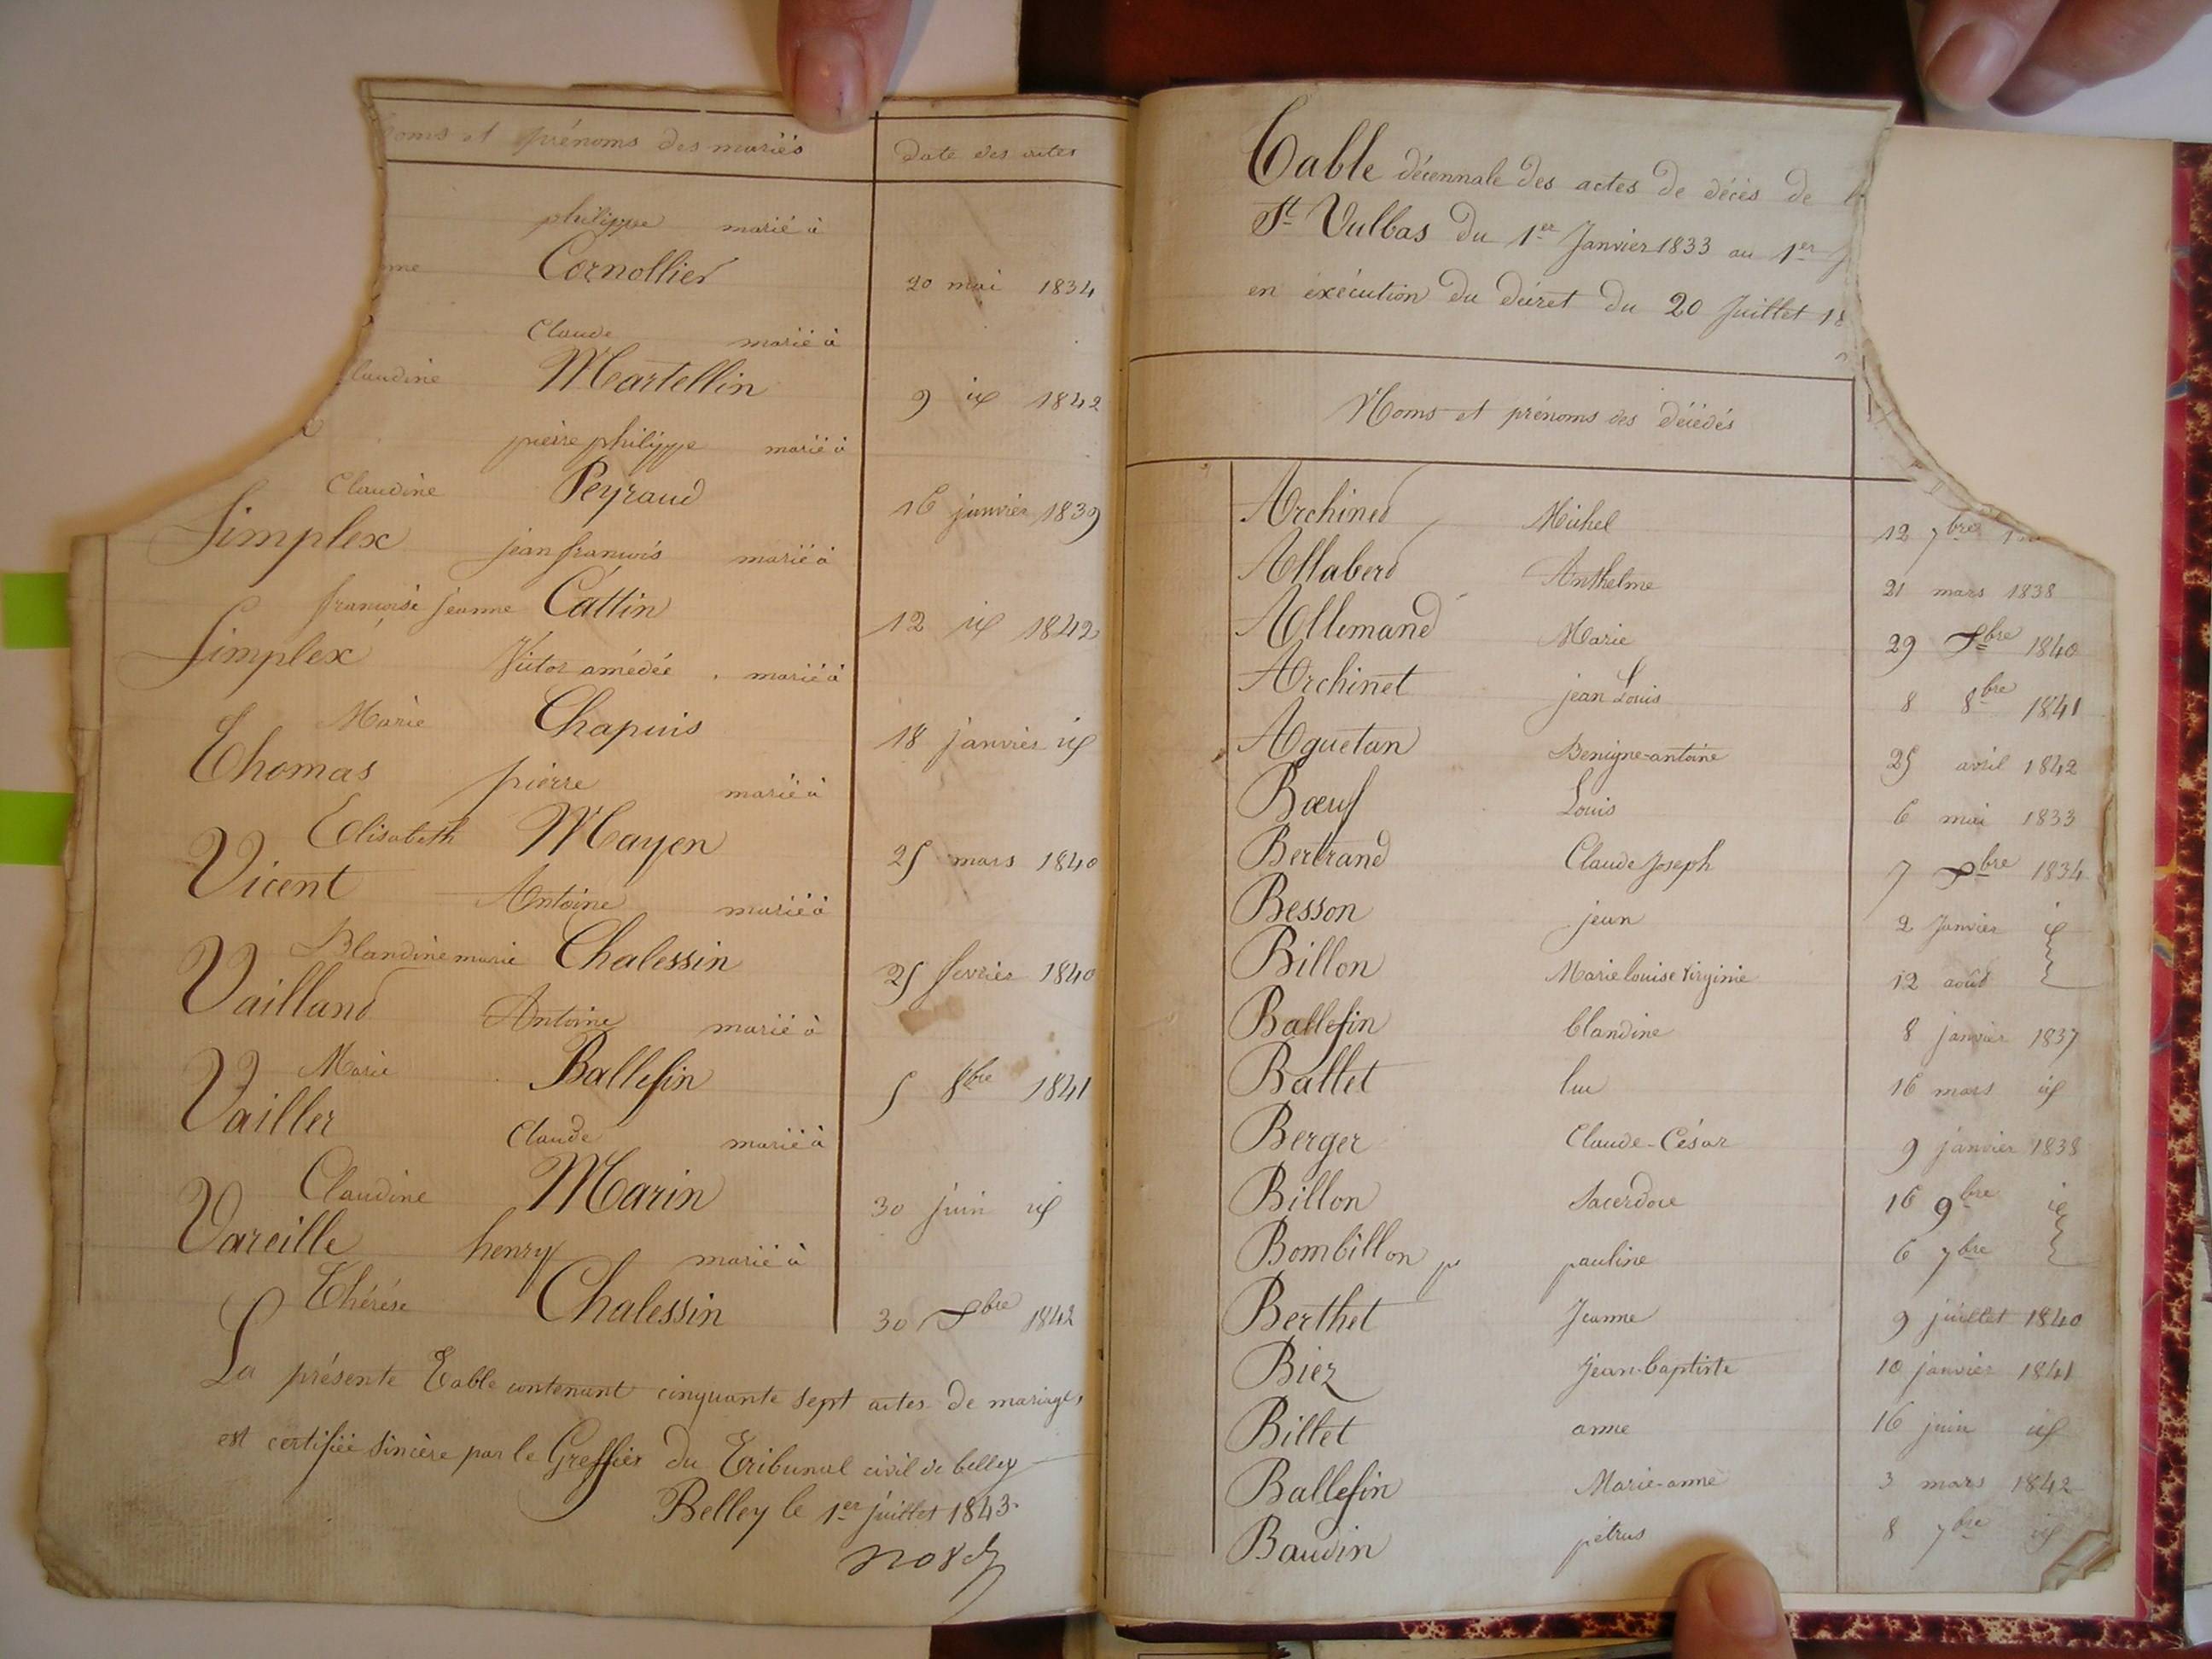 oms et prénoms des mariés
date des actes
philippe marié à
Cornollier 20 mai 1834
Claude marié à
laudine Martellin 9 id 1842
pierre philippe marié à
Claudine Peyraud 16 janvier 1839
Simplex jean françois marié à
françoise jeanne Cattin 12 id 1842
Simplex Victor amédée marié à
Marie Chapuis 18 janvier id
Thomas pierre marié à
Elisabeth Mayen 25 mars 1840
Vicent Antoine marié à
Blandine marie Chalessin 25 fevrier 1840
Vailland Antoine marié à
Marie Ballefin 5 8bre 1841
Vailler Claude marié à
Claudine Marin 30 juin id
Vareille henry marié à
Thérése Chalessin 30 Xbre 1842
La présente Table contenant cinquante sept actes de mariages
est certifiée sincère par le Greffier du Tribunal civil de belley
Belley le 1er juillet 1843
Table décennale des actes de décès de
St Vulbas du 1er Janvier 1833 au 1er
en éxécution du décret du 20 Juillet 18
Noms et prénoms des décédés
Archined Michel 12 7bre
Allaberd Anthelme 21 mars 1838
Allemand Marie 29 Xbre 1840
Archinet jean Louis 8 8bre 1841
Aguetan Benigne-antoine 25 avril 1842
Bœuf Louis 6 mai 1833
Bertrand Claude Joseph 7 Xbre 1834
Besson jean 2 Janvier id
Billon Marie louise virginie 12 août
Ballefin blandine 8 janvier 1837
Ballet luc 16 mars id
Berger Claude-César 9 janvier 1838
Billon Sacerdoce 16 9bre id
Bombillon pauline 6 7bre
Berthet Jeanne 9 juillet 1840
Biez Jean-baptiste 10 janvier 1841
Billet anne 16 juin id
Ballefin Marie-anne 3 mars 1842
Baudin pétrus 8 7bre id